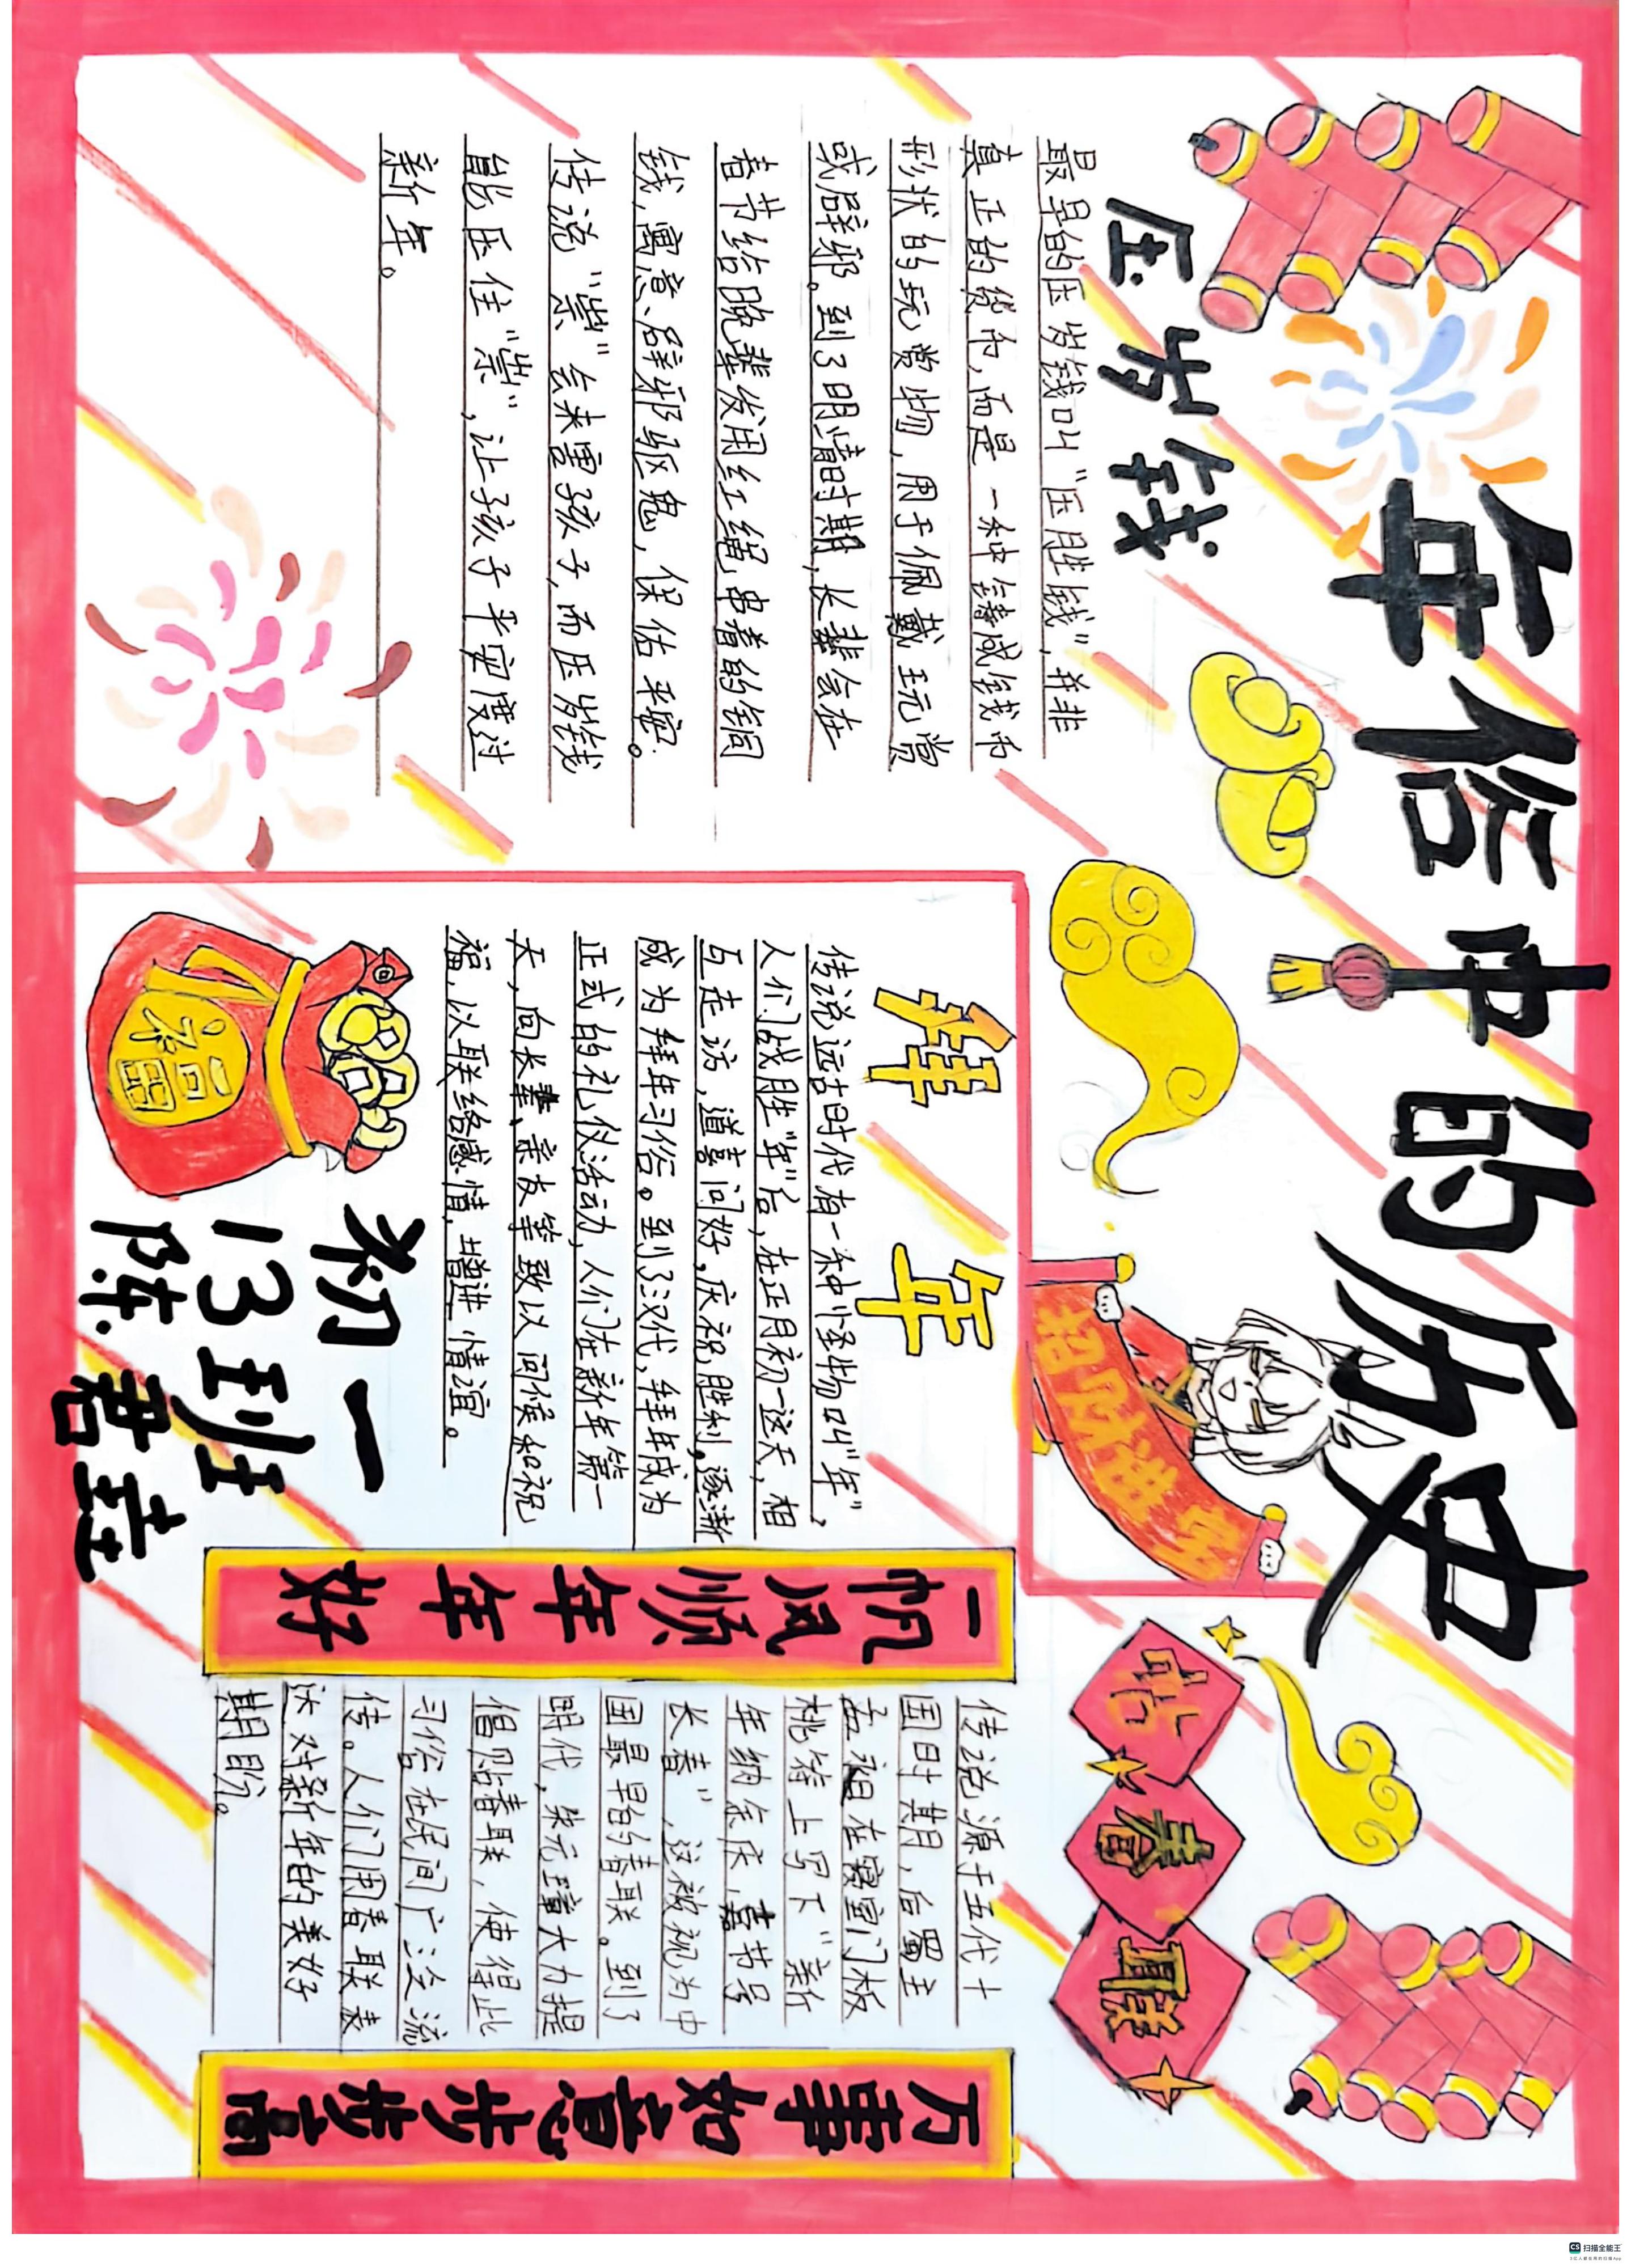 年俗中的历史
压岁钱
最早的压岁钱叫“压胜钱”,并非
真正的货币,而是一种铸成钱币
形状的玩赏物,用于佩戴玩赏
或辟邪。到了明清时期,长辈会在
春节给晚辈发用红绳串着的铜
钱,寓意辟邪驱鬼,保佑平安。
传说“祟”会来害孩子,而压岁钱
能压住“祟”,让孩子平安度过
新年。
拜年
传说远古时代有一种怪物叫“年”,
人们战胜“年”后,在正月初一这天,相
互走访,道喜问好,庆祝胜利。逐渐
成为拜年习俗。到了汉代,拜年成为
正式的礼仪活动,人们在新年第一
天,向长辈、亲友等致以问候和祝
福,以联络感情,增进情谊。
福
招财进宝
初一
13班
陈君
贴春联
一帆风顺年年好
传说源于五代十
国时期,后蜀主
孟昶在寝室门板
桃符上写下“新
年纳余庆,嘉节号
长春”,这被视为中
国最早的春联。到了
明代,朱元璋大力提
倡贴春联,使得此
习俗在民间广泛流
传。人们用春联表
达对新年的美好
期盼。
万事如意步步高
CS 扫描全能王
3亿人都在用的扫描App